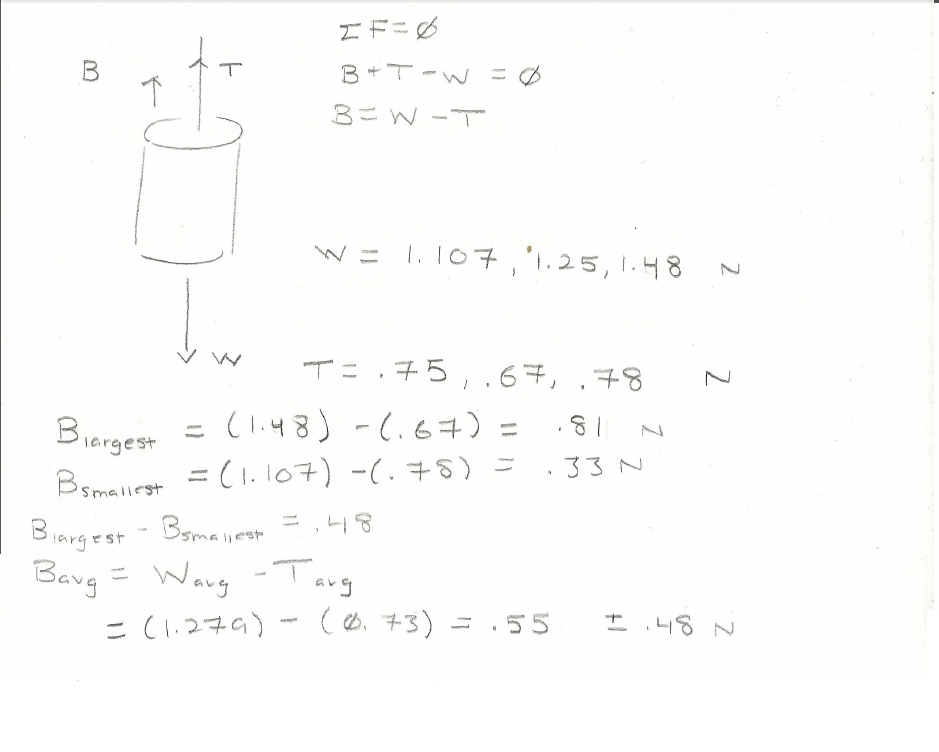 ΣF=∅
B T
B+T-W=∅
B=W-T
W = 1.107, 1.25, 1.48 N
W
T = .75, .67, .78 N
Blargest = (1.48) - (.67) = .81 N
Bsmallest = (1.107) - (.78) = .33 N
Blargest - Bsmallest = .48
Bavg = Wavg - Tavg
= (1.279) - (∅.73) = .55 ± .48 N